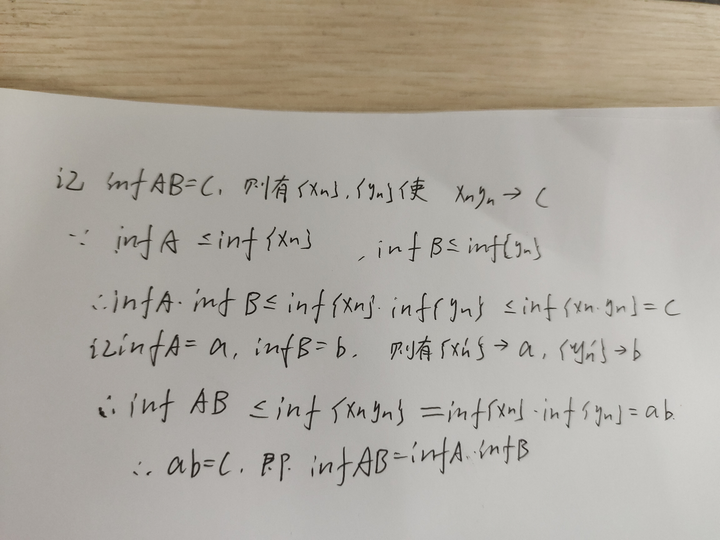 记 inf AB=C, 则有{xn},{yn}使 xnyn→C
∵ inf A ≤inf{xn} , inf B≤inf{yn}
∴inf A·inf B≤inf{xn}·inf{yn} ≤inf{xn·yn}=C
记inf A=a, inf B=b, 则有{xn'}→a,{yn'}→b
∴ inf AB ≤inf{xnyn}=inf{xn}·inf{yn}=ab.
∴ ab=C. 即 inf AB=inf A·inf B